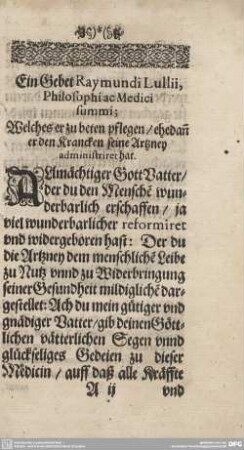 Ein Gebet Raymundi Lullii,
Philosophi ac Medici
summi;
Welches er zu beten pflegen / ehedañ
er den Krancken seine Artzney
administriret hat.
ALlmächtiger Gott Vatter /
der du den Menschẽ wun-
derbarlich erschaffen / ja
viel wunderbarlicher reformiret
vnd widergeboren hast: Der du
die Artzney dem menschlichẽ Leibe
zu Nutz vnnd zu Widerbringung
seiner Gesundheit mildiglichẽ dar-
gestellet: Ach du mein gütiger vnd
gnädiger Vatter / gib deinen Gött-
lichen vätterlichen Segen vnnd
glückseliges Gedeien zu dieser
Medicin / auff daß alle Kräffte
A ij vnd